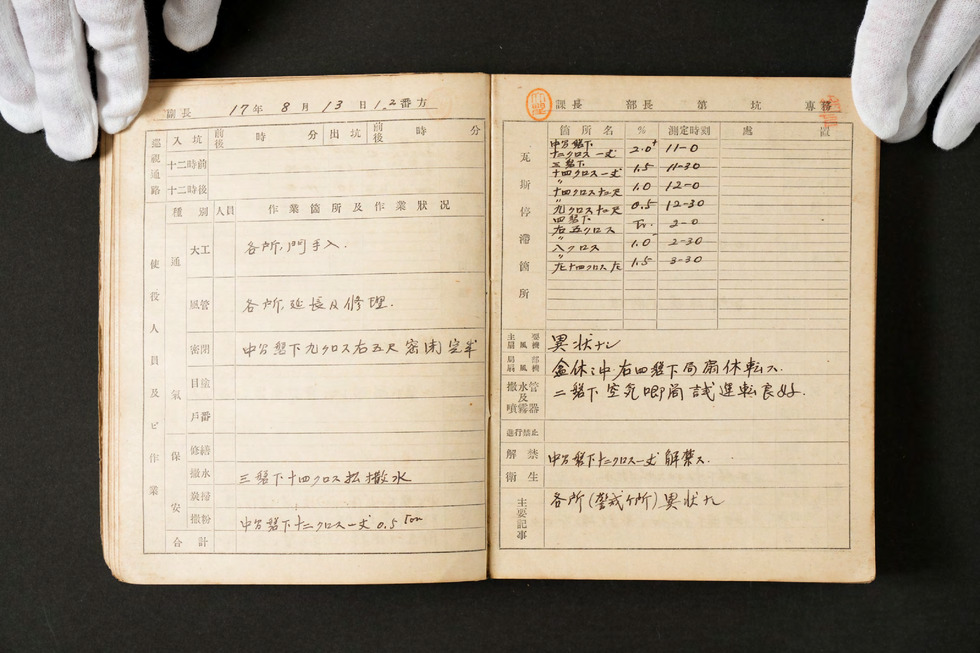 副長 17年 8月 13日 1.2番方
巡視通路 入坑 前後 時 分 出坑 前後 時 分
十二時前
十二時後
種別 人員 作業箇所及作業狀況
使役人員及ビ作業
通氣
大工 各所、門手入.
風管 各所、延長及修理.
密閉 中号盤下九クロス右五尺 密閉
目塗
戶番
保安
修繕
撒水 三盤下十四クロス 撒水
炭掃
撒粉 中号盤下十二クロス一丈 0.5 Ton
合計
課長 部長 第 坑 專務
瓦斯停滯箇所
箇所名 % 測定時刻 處置
中号盤下
十二クロス一丈 2.0+ 11-0
三盤下
十四クロス一丈 1.5 11-30
〃
十四クロス十二尺 1.0 12-0
〃
九クロス十二尺 0.5 12-30
四盤下
右五クロス Tr. 2-0
〃
八クロス 1.0 2-30
〃
十四クロス 1.5 3-30
主要扇風機 異狀ナシ
局部扇風機 盆休ミ中右四盤下局扇休転ス.
撒水管及噴霧器 二盤下空気喞筒試運転良好.
通行禁止
解禁 中号盤下十二クロス一丈 解禁ス.
衛生
主要記事 各所(警戒ケ所)異狀ナシ